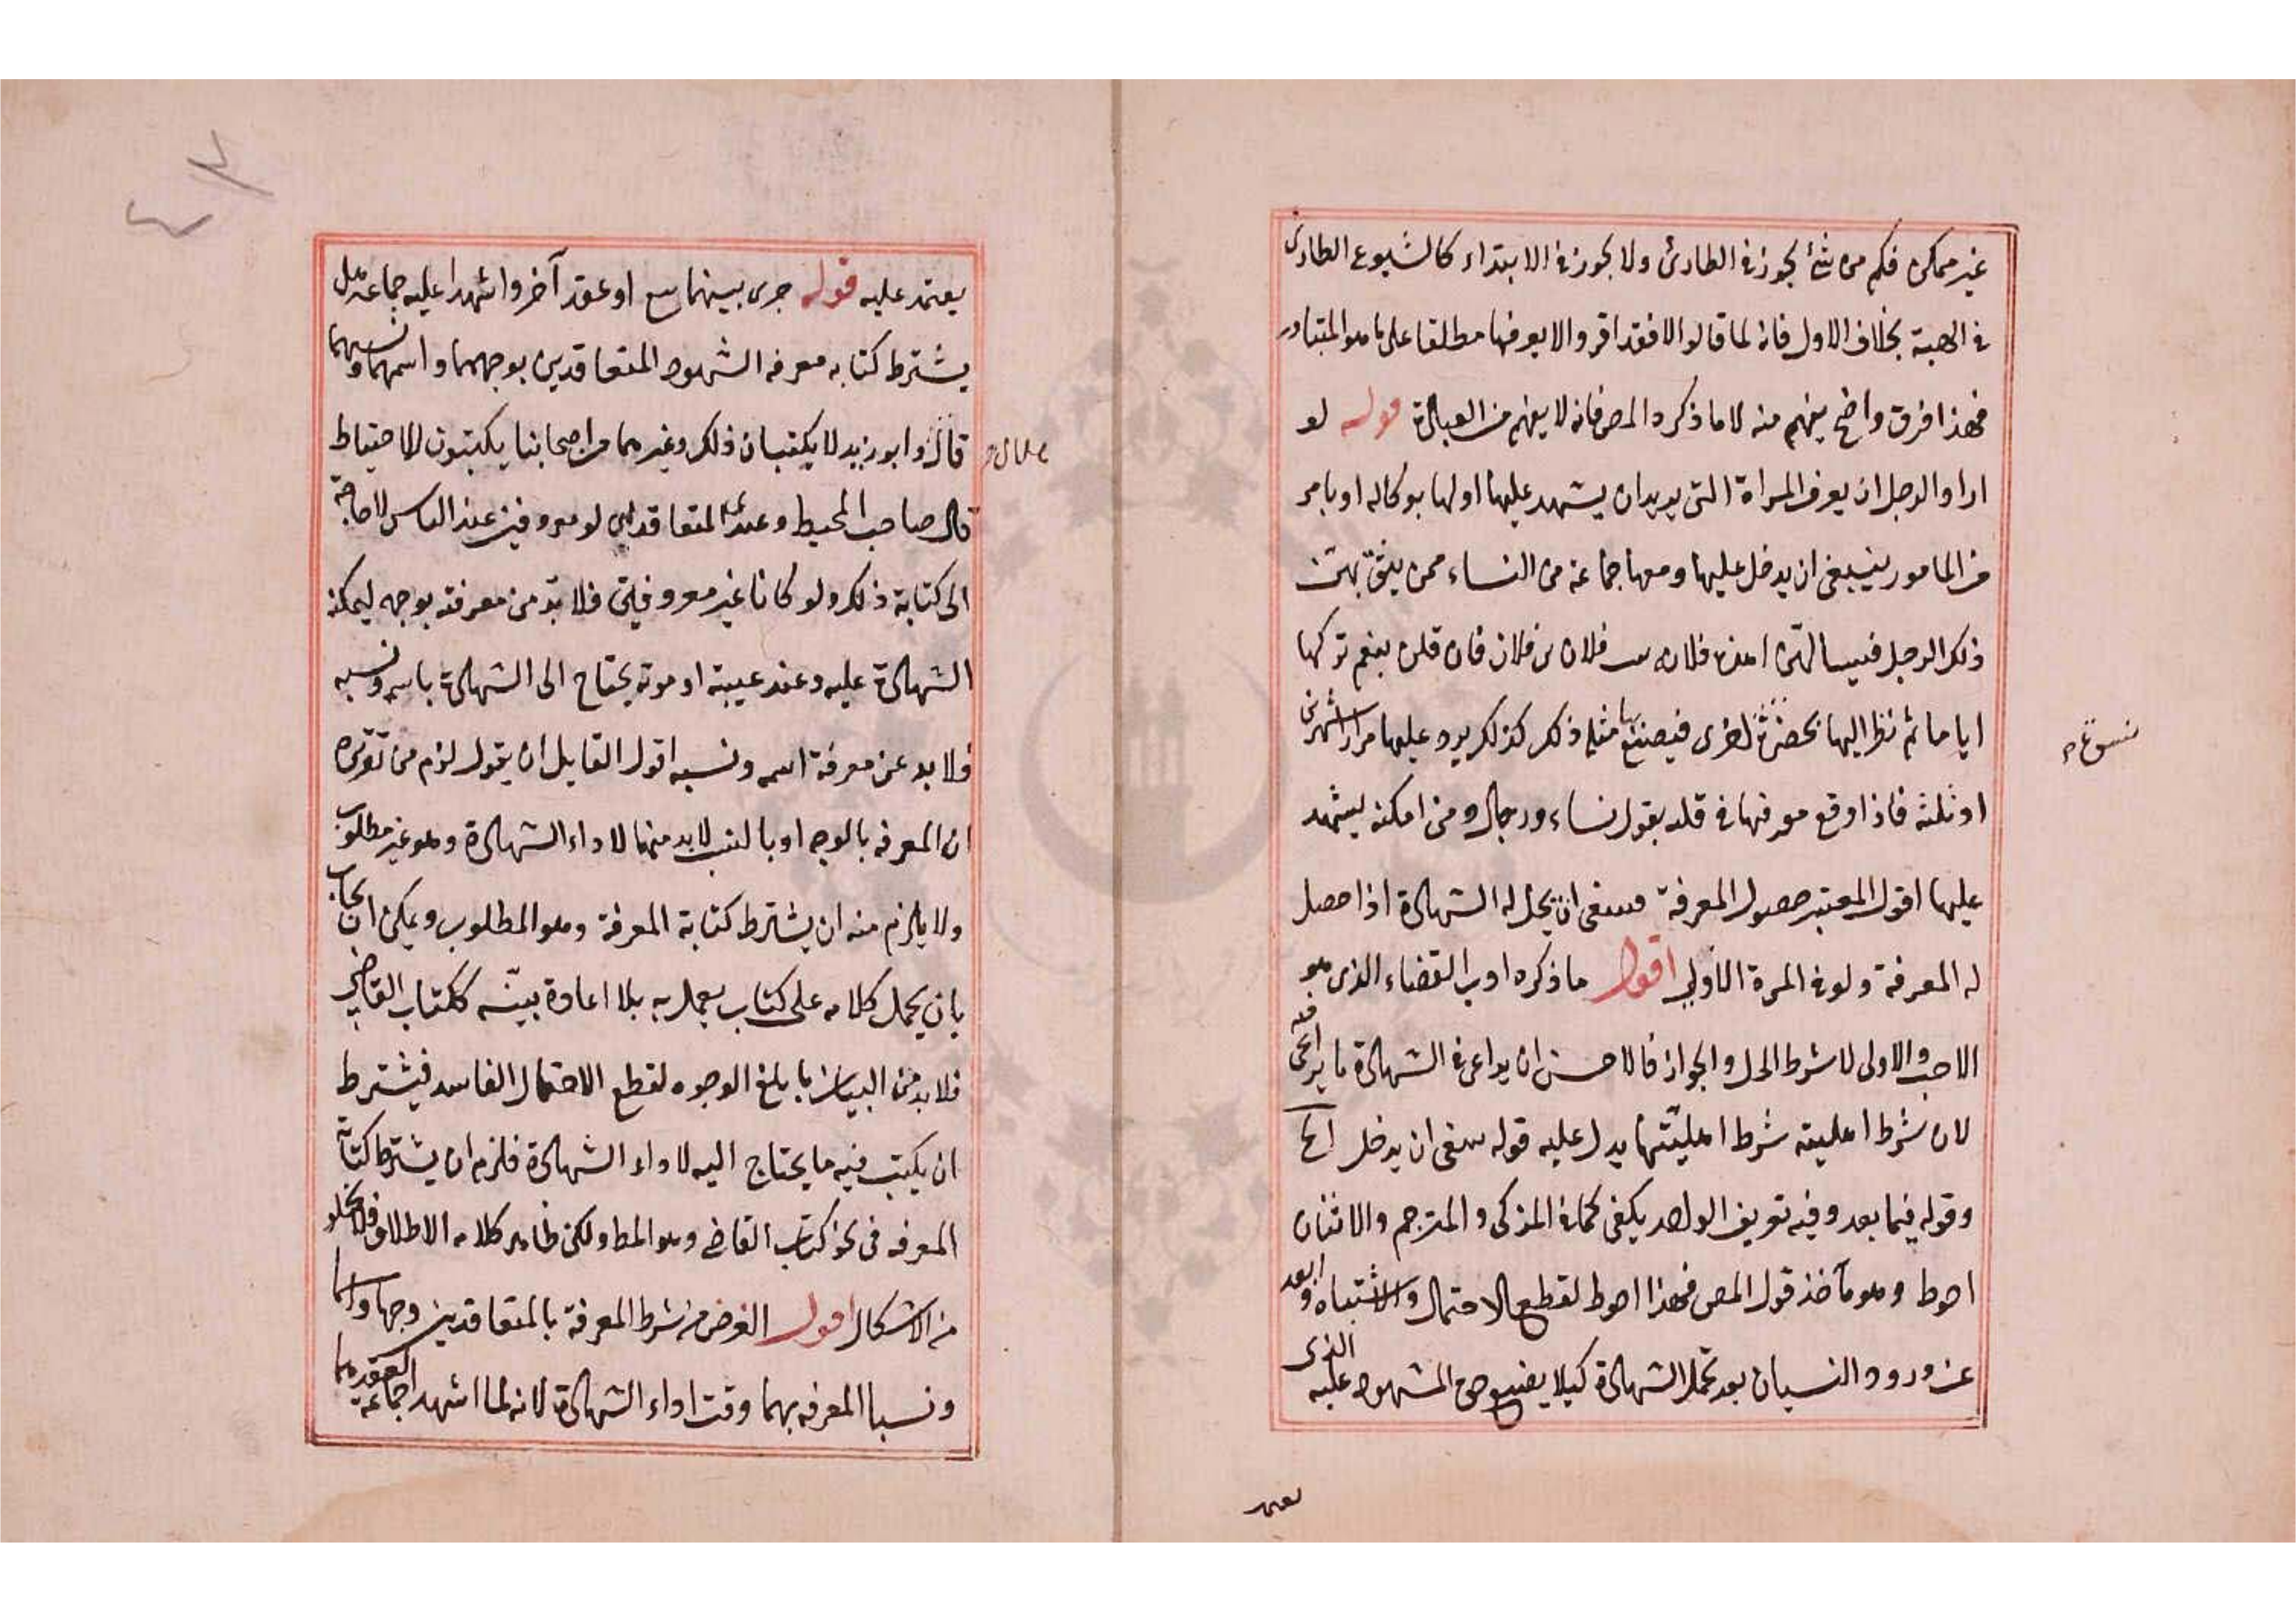 غير ممكن فكم من شئ يجوز في الطارئ ولا يجوز في الابتداء كالشيوع الطارى
في الهبة بخلاف الاول فانه لما قالوا لا فقد اقروا لا يعرفها مطلقا على ما هو المتبادر
فهذا فرق واضح يفهم منه لا ما ذكره المص فانه لا يفهم من العبارة قوله لو
اراد الرجل ان يعرف المراة التى يريد ان يشهد عليها او لها بوكالة او بامر
من المامور ينبغى ان يدخل عليها ومعها جماعة من النساء ممن يثق بهن
ذلك الرجل فيسالهن اهذه فلانه بنت فلان بن فلان فان قلن نعم تركها
اياما ثم نظر اليها بحضرة اخرى فيصنع بها مثل ذلك كذلك يردد عليها مرارا شهرين
او ثلثة فاذا وقع معرفتها في قلبه بقول نساء ورجال ومن امكنه ليشهد
عليها اقول المعتبر حصول المعرفة فينبغى ان يحل له الشهادة اذا حصل
له المعرفة ولو في المرة الاولى اقول ما ذكره ادب القضاء الذى هو
الاحب والاولى لا شرط الحل والجواز فالاحسن ان يراعى في الشهادة ما يراعى فيه
لان شرط اهليته شرط اهليتها يدل عليه قوله ينبغى ان يدخل الخ
وقوله فيما بعد وفيه تعريف الواحد يكفى كما في المزكى والمترجم والاثنان
احوط وهو مآخذ قول المص فهذا احوط لقطع الاحتمال والاشتباه وابعد
عن ورود النسيان بعد تحمل الشهادة كيلا يضيع حق المشهود عليه الذى
يعتمد
يعتمد عليه قوله جرى بينهما بيع او عقد آخر واشهدا عليه جماعة هل
يشترط كتابه معرفه الشهود المتعاقدين بوجههما واسمهما ونسبهما
قال وابو زيد لا يكتبان ذلك وغيرهما من اصحابنا يكتبون للاحتياط
قال صاحب المحيط وعندى المتعاقدين لو معروفين عند الناس لا حاجة
الى كتابة ذلك ولو كانا غير معروفين فلا بد من معرفته بوجه ليمكنه
الشهادة عليه وعند غيبته او موته يحتاج الى الشهادة باسمه ونسبه
فلا بد عن معرفة اسمه ونسبه اقول القايل ان يقول لزم من تقريره
ان المعرفه بالوجه او بالنسب لا بد منها لاداء الشهادة وهو غير مطلوب
ولا يلزم منه ان يشترط كتابة المعرفة وهو المطلوب ويمكن ان يجاب
بان يحمل كلامه على كتاب يعمل به بلا اعادة بينه ككتاب القاضى
فلا بد من البيان بابلغ الوجوه لقطع الاحتمال الفاسد فيشترط
ان يكتب فيه ما يحتاج اليه لاداء الشهادة فلزم ان يشترط كتابة
المعرفه فى نحو كتاب القاضى وهو المط ولكن ظاهر كلامه الاطلاق فلا يخلو
من الاشكال اقول الغرض من شرط المعرفة بالمتعاقدين وجها واسما
ونسبا المعرفه بهما وقت اداء الشهادة لانه لما اشهد العقد جماعة